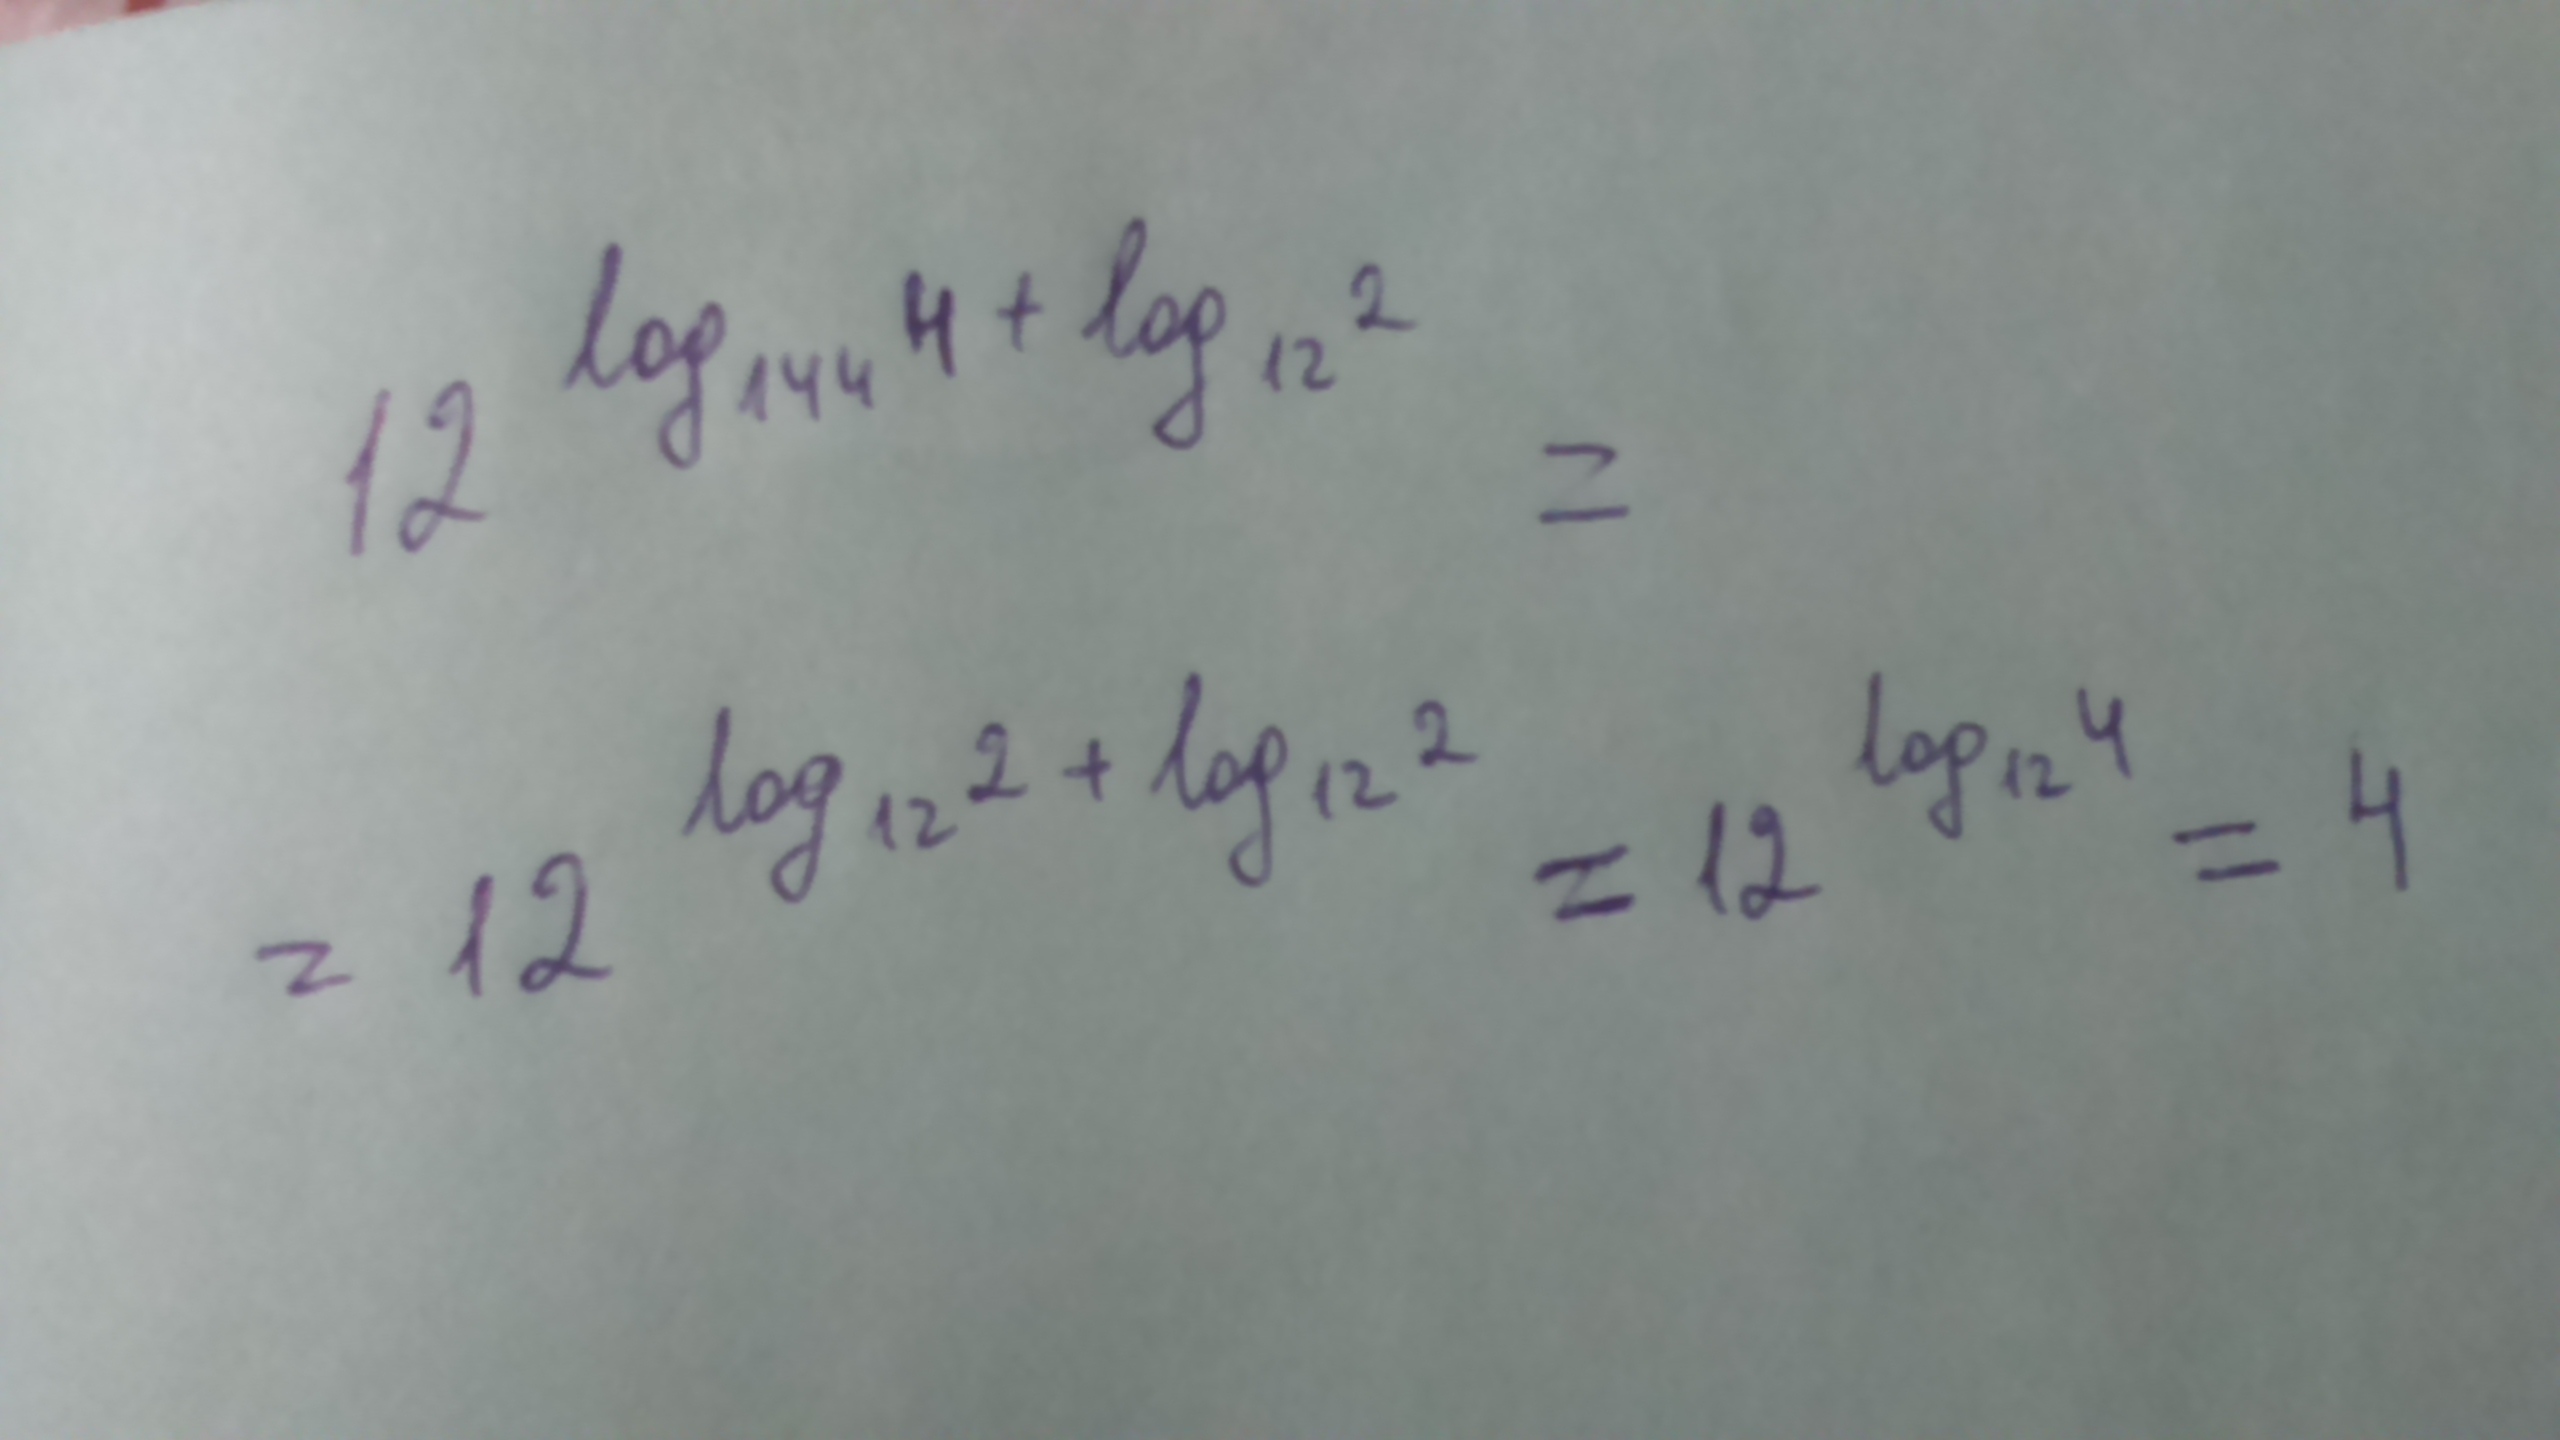 12^{log_{144} 4 + log_{12} 2} =
= 12^{log_{12} 2 + log_{12} 2} = 12^{log_{12} 4} = 4